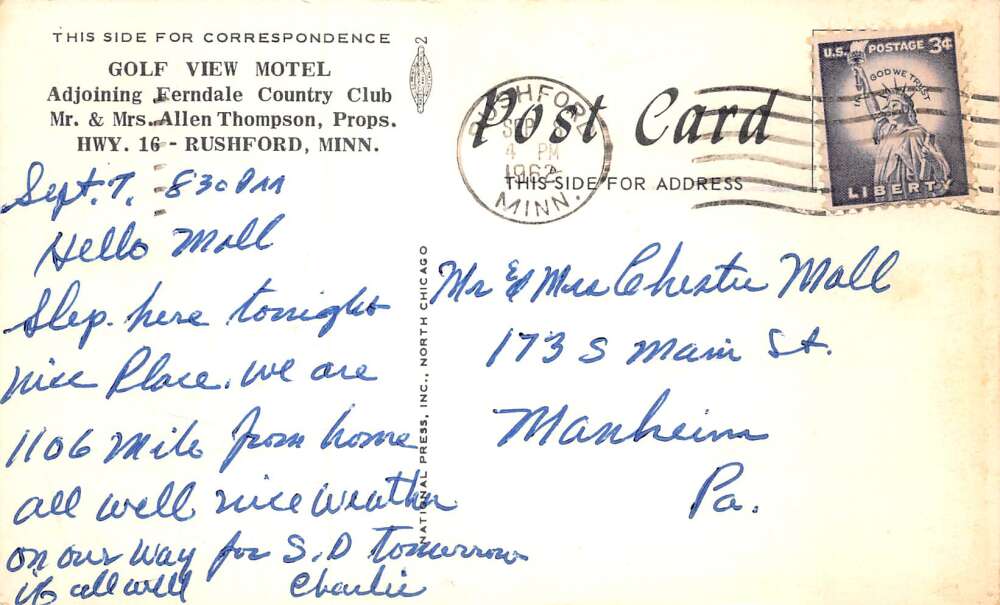 THIS SIDE FOR CORRESPONDENCE
GOLF VIEW MOTEL
Adjoining Ferndale Country Club
Mr. & Mrs. Allen Thompson, Props.
HWY. 16 - RUSHFORD, MINN.
Sept. 7. 830 PM
Hello Moll
Slep. here tonight
nice Place. we are
1106 Mile from home
all well nice weather
on our way for S.D tomorrow
if all well Charlie
2
NATIONAL PRESS, INC., NORTH CHICAGO
Post Card
THIS SIDE FOR ADDRESS
RUSHFORD
SEP
4 PM
1962
MINN.
U.S. POSTAGE 3¢
IN GOD WE TRUST
LIBERTY
Mr & Mrs Chester Moll
173 S Main St.
Manheim
Pa.